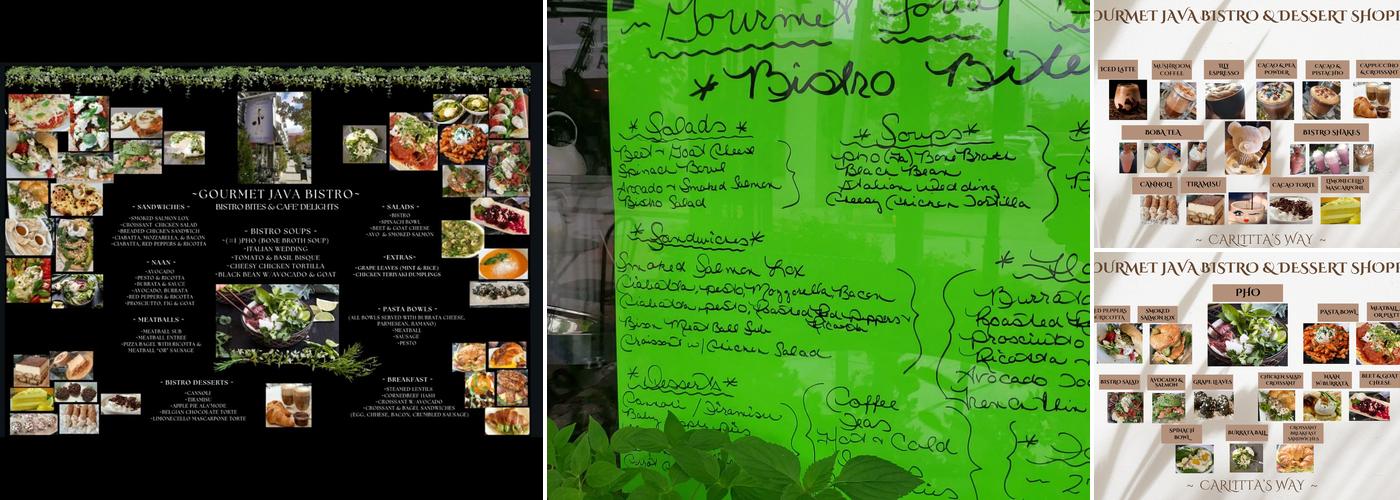 ~GOURMET JAVA BISTRO~
BISTRO BITES & CAFE' DELIGHTS
~ SANDWICHES ~
~SMOKED SALMON LOX
~CROISSANT CHICKEN SALAD
~BREADED CHICKEN SANDWICH
~CIABATTA, MOZZARELLA, & BACON
~CIABATTA, RED PEPPERS & RICOTTA
~ NAAN ~
~AVOCADO
~PESTO & RICOTTA
~BURRATA & SAUCE
~AVOCADO, BURRATA
~RED PEPPERS & RICOTTA
~PROSCIUTTO, FIG & GOAT
~ MEATBALLS ~
~MEATBALL SUB
~MEATBALL ENTREE
~PIZZA BAGEL WITH RICOTTA &
MEATBALL "OR" SAUSAGE
~ BISTRO SOUPS ~
~(#1 )PHO (BONE BROTH SOUP)
~ITALIAN WEDDING
~TOMATO & BASIL BISQUE
~CHEESY CHICKEN TORTILLA
~BLACK BEAN W/AVOCADO & GOAT
~ SALADS ~
~BISTRO
~SPINACH BOWL
~BEET & GOAT CHEESE
~AVO & SMOKED SALMON
~EXTRAS~
~GRAPE LEAVES (MINT & RICE)
~CHICKEN TERIYAKI DUMPLINGS
~ PASTA BOWLS ~
(ALL BOWLS SERVED WITH BURRATA CHEESE,
PARMESEAN, RAMANO)
~MEATBALL
~SAUSAGE
~PESTO
~ BISTRO DESSERTS ~
~CANNOLI
~TIRAMISU
~APPLE PIE ALA'MODE
~BELGIAN CHOCOLATE TORTE
~LIMONECELLO MASCARPONE TORTE
~ BREAKFAST ~
~STEAMED LENTILS
~CORNEDBEEF HASH
~CROISSANT W/AVOCADO
~CROISSANT & BAGEL SANDWICHES
(EGG, CHHESE, BACON, CRUMBLED SAUSAGE)
Gourmet Food
* Bistro Bites
* Salads *
Beet & Goat Cheese
Spinach Bowl
Avocado & Smoked Salmon
Bistro Salad
* Soups *
Pho (#1) Bone Broth
Black Bean
Italian Wedding
Cheesy Chicken Tortilla
* Sandwiches *
Smoked Salmon Lox
Ciabatta, pesto, Mozzarella, Bacon
Ciabatta, pesto, Roasted Red Peppers &
Ricotta
Bison Meat Ball Sub
Croissant w/ Chicken Salad
Burrata
Roasted
Prosciutto
Ricotta
Avocado
* Desserts *
Cannoli / Tiramisu
Coffee
Teas
Hot & Cold
OURMET JAVA BISTRO & DESSERT SHOPP
ICED LATTE
MUSHROOM COFFEE
ILLY ESPRESSO
CACAO & PEA POWDER
CACAO & PISTACHIO
CAPPUCCINO & CROISSANT
BOBA TEA
BISTRO SHAKES
CANNOLI
TIRAMISU
CACAO TORTE
LIMONECELLO MASCARPONE
~ CARLITTA'S WAY ~
OURMET JAVA BISTRO & DESSERT SHOPP
PHO
ED PEPPERS RICOTTA
SMOKED SALMON LOX
PASTA BOWL
MEATBALL
BISTRO SALAD
AVOCADO & SALMON
GRAPE LEAVES
CHICKEN SALAD CROISSANT
NAAN W/BURRATA
BEET & GOAT CHEESE
SPINACH BOWL
BURRATA BALL
CROISSANT BREAKFAST SANDWICHES
~ CARLITTA'S WAY ~